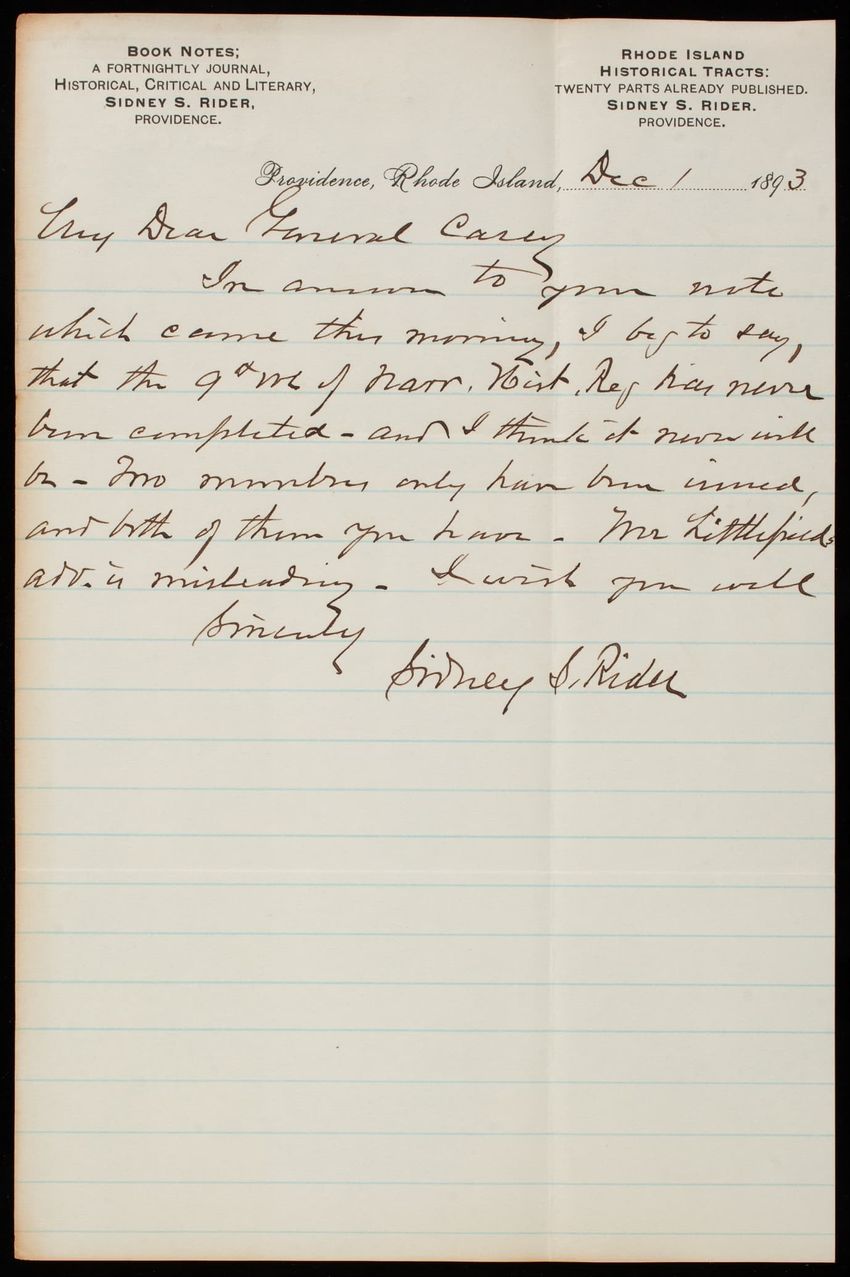 BOOK NOTES;
A FORTNIGHTLY JOURNAL,
HISTORICAL, CRITICAL AND LITERARY,
SIDNEY S. RIDER,
PROVIDENCE.
RHODE ISLAND
HISTORICAL TRACTS:
TWENTY PARTS ALREADY PUBLISHED.
SIDNEY S. RIDER.
PROVIDENCE.
Providence, Rhode Island, Dec 1 1893
My Dear General Casey
In answer to your note
which came this morning, I beg to say,
that the 9th vol of Narr. Hist. Reg has never
been completed - and I think it never will
be - Two numbers only have been issued,
and both of them you have - Mr Littlefield's
adv. is misleading - I wish you well
Sincerely
Sidney S. Rider